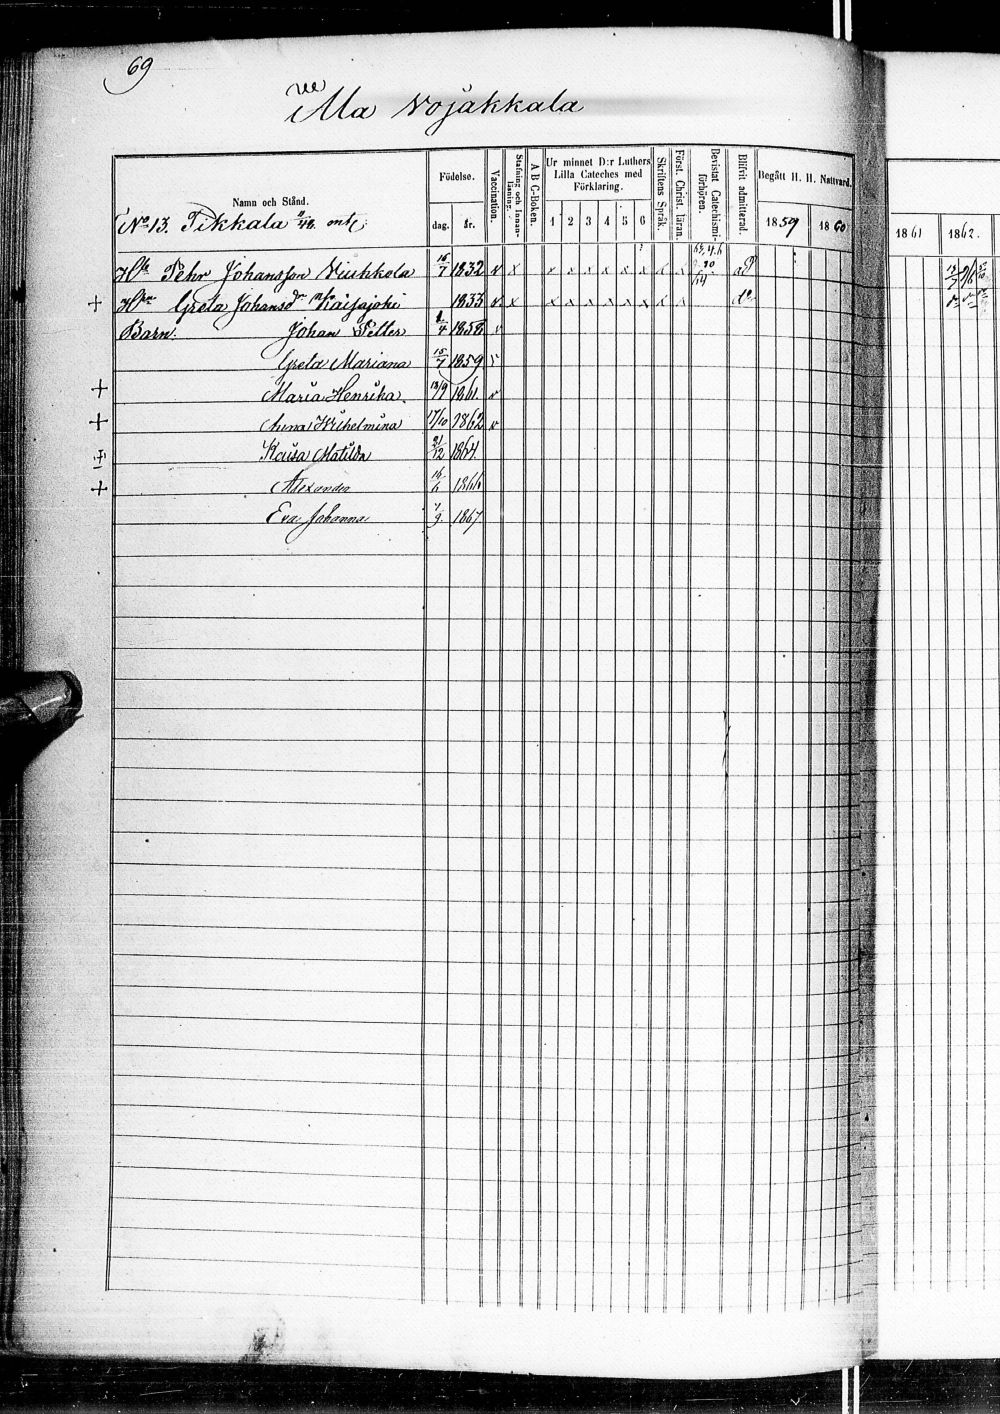 69
Alla Vojakkala
Namn och Stånd.
Födelse.
dag.
år.
Vaccination.
Stafning och Innan-läsning.
A B C-Boken.
Ur minnet D:r Luthers
Lilla Cateches med
Förklaring.
1 2 3 4 5 6
Skriftens Språk.
Först. Christ. läran.
Bevistat Catechismi-förhören.
Blifvit admitterad
Begått H. H. Nattvard.
1859 1860
1861 1862.
No 13. Tikkala
Pehr Johansson Viuhkola 16/7 1832 v x x x x x x x x x
+ Greta Johansd:r Kaisajoki 1833 v x x x x x x x x x
Barn. Johan Petter 1858 v
Greta Mariana 15/7 1859
+ Maria Henrika. 13/9 1861. v
+ Anna Wilhelmina 17/10 1862 v
Kaisa Matilda 21/12 1864.
+ Alexander 16/6 1866
Eva Johanna 7/9. 1867.